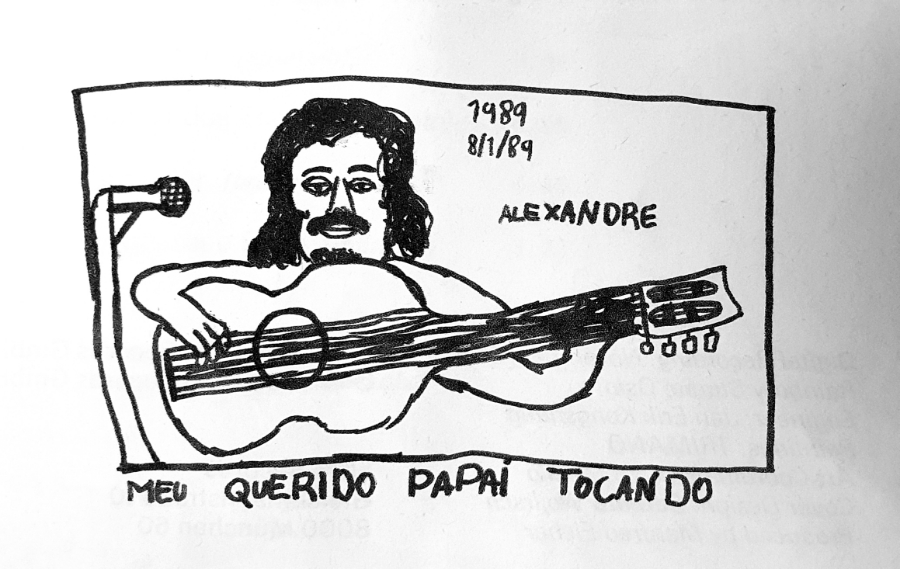 1989
8/1/89
ALEXANDRE
MEU QUERIDO PAPAI TOCANDO